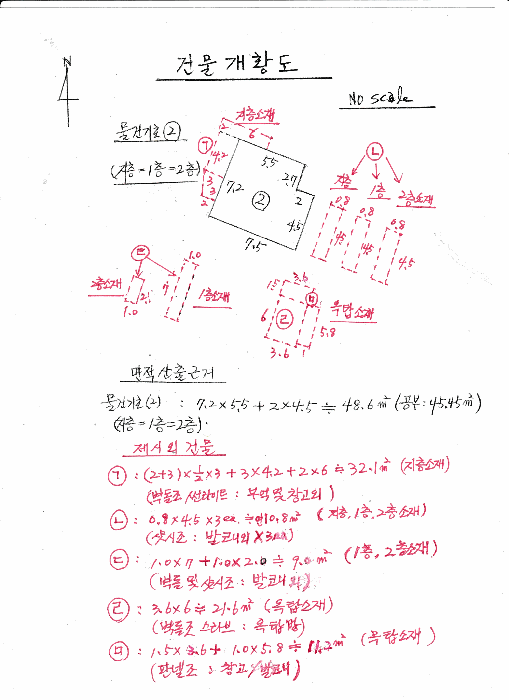 건물개황도
N
NO scale
지층소재
물건기호(2)
(지층=1층=2층)
ㄱ
2
6
14.2
3
3
2
5.5
2.7
2
7.2
②
4.5
7.5
ㄴ
지층
1층
2층소재
0.8
0.8
0.8
4.5
4.5
4.5
ㄷ
2층소재
1.0
2
1.0
7
1층소재
3.6
1.5
ㅁ
옥탑소재
6
ㄹ
5.8
3.6
1
면적산출근거
물건기호(2) : 7.2×5.5 + 2×4.5 ≒ 48.6㎡ (공부: 45.45㎡)
(지층=1층=2층).
제시외 건물
ㄱ : (2+3)×½×3 + 3×4.2 + 2×6 ≒ 32.1㎡ (지층소재)
(벽돌조 썬라이트 : 부엌 및 창고외)
ㄴ : 0.8×4.5×3ea. ≒ 10.8㎡ (지층, 1층, 2층소재)
(샷시조 : 발코니외 ×3ea)
ㄷ : 1.0×7 + 1.0×2.0 ≒ 9.0㎡ (1층, 2층소재)
(벽돌 및 샷시조 : 발코니외)
ㄹ : 3.6×6 ≒ 21.6㎡ (옥탑소재)
(벽돌조 스라브 : 옥탑방)
ㅁ : 1.5×3.6 + 1.0×5.8 ≒ 11.2㎡ (옥탑소재)
(판넬조 : 창고/발코니)